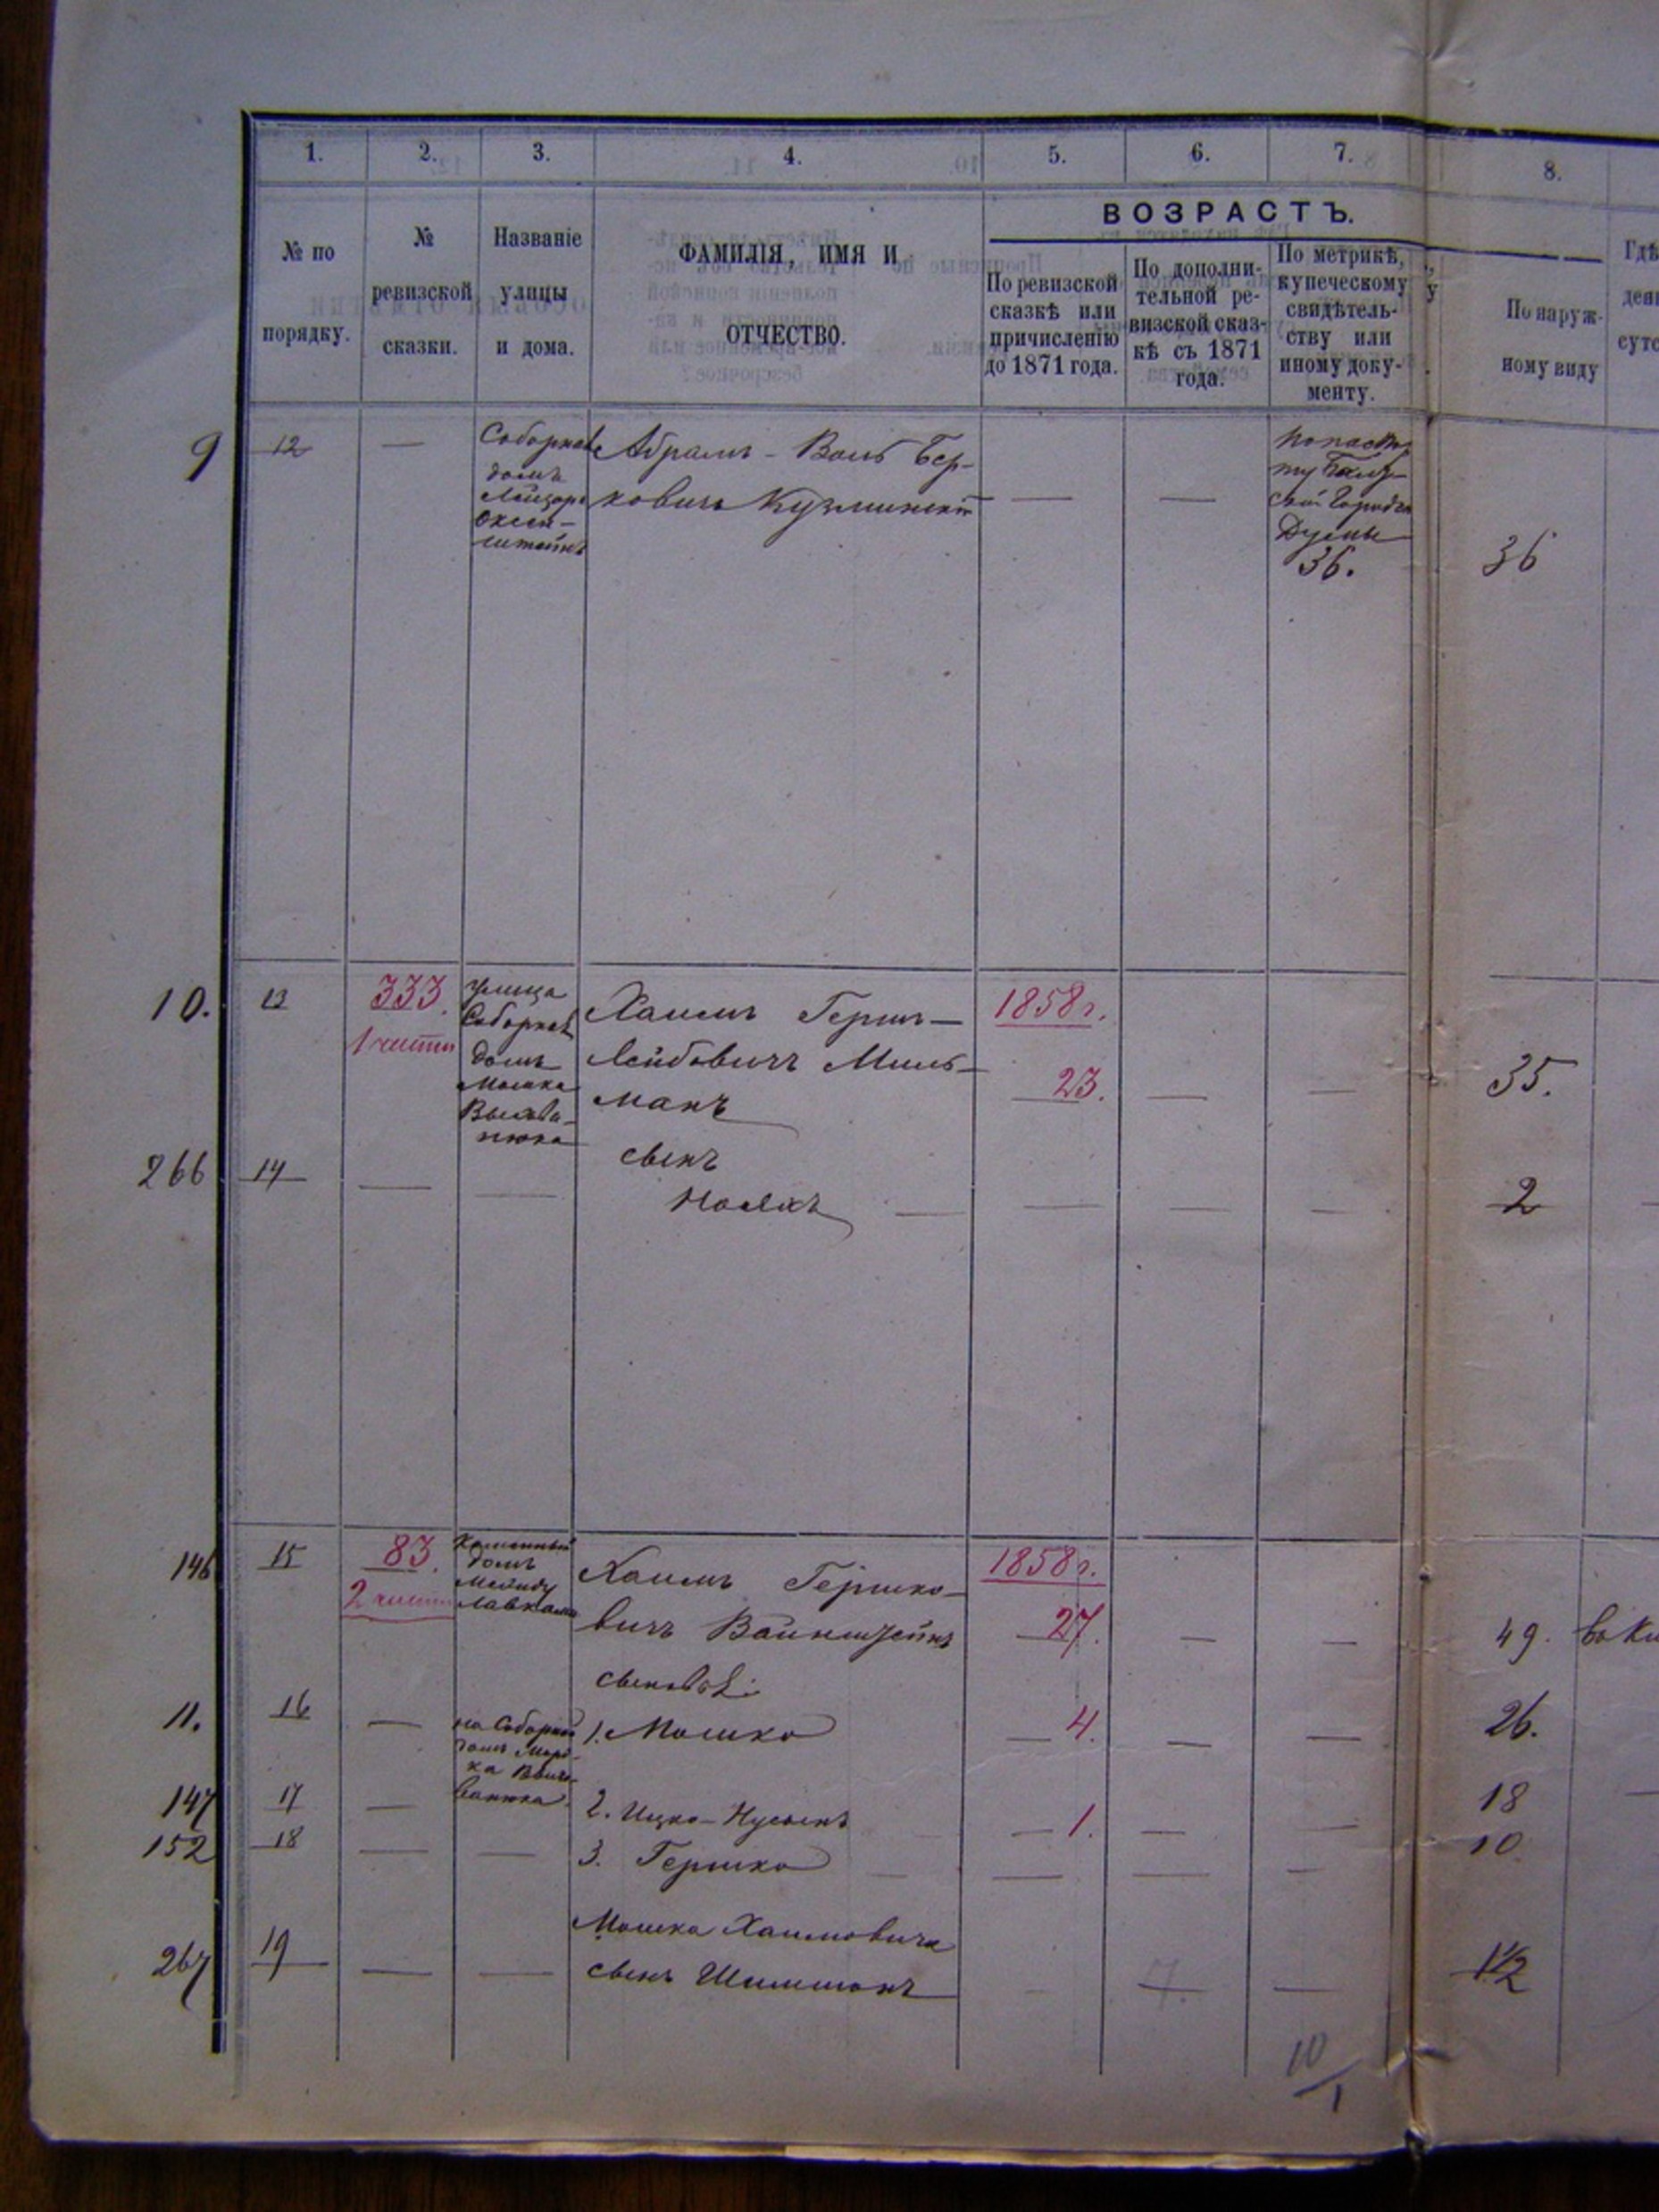 1. 2. 3. 4. 5. 6. 7. 8.
№ по порядку.
№ ревизской сказки.
Названіе улицы и дома.
ФАМИЛІЯ, ИМЯ И ОТЧЕСТВО.
ВОЗРАСТЪ.
По ревизской сказкѣ или причисленію до 1871 года.
По дополнительной ревизской сказкѣ съ 1871 года.
По метрикѣ, купеческому свидѣтельству или иному документу.
По наружному виду
Гдѣ
9 12 —
Соборная
домъ
Лейзора
Оксен-
штейнъ
Абрамъ - Воль Бер-
ковичъ Кузминскій
— —
Городской
Думы
36.
36
10. 13 333.
1 части
улица
Соборная
домъ
Мошка
Хаимъ Гершъ-
Лейбовичъ Миль-
манъ
1858 г.
23. — —
35.
266 14 — —
сынъ
— — — —
2
146 15 83.
2 части
Каменный
домъ
лавками
Хаимъ Гершко-
вичъ Вайнштейнъ
1858 г.
27. — —
49.
сыновья:
11. 16 —
на Соборной
1. Мошко
4. — —
26.
147 17 —
2. Ицко-Нусынъ
1. — —
18
152 18 — —
3. Гершко
— — — —
10
267 19 — —
Мошка Хаимовича
сынъ Шимшонъ
7. —
1 1/2
10/1